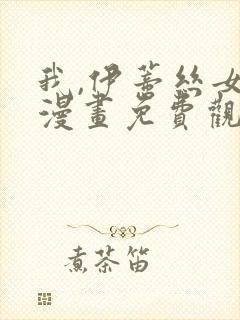 我,伊蒂丝女
漫畫免費觀
煮茶笛